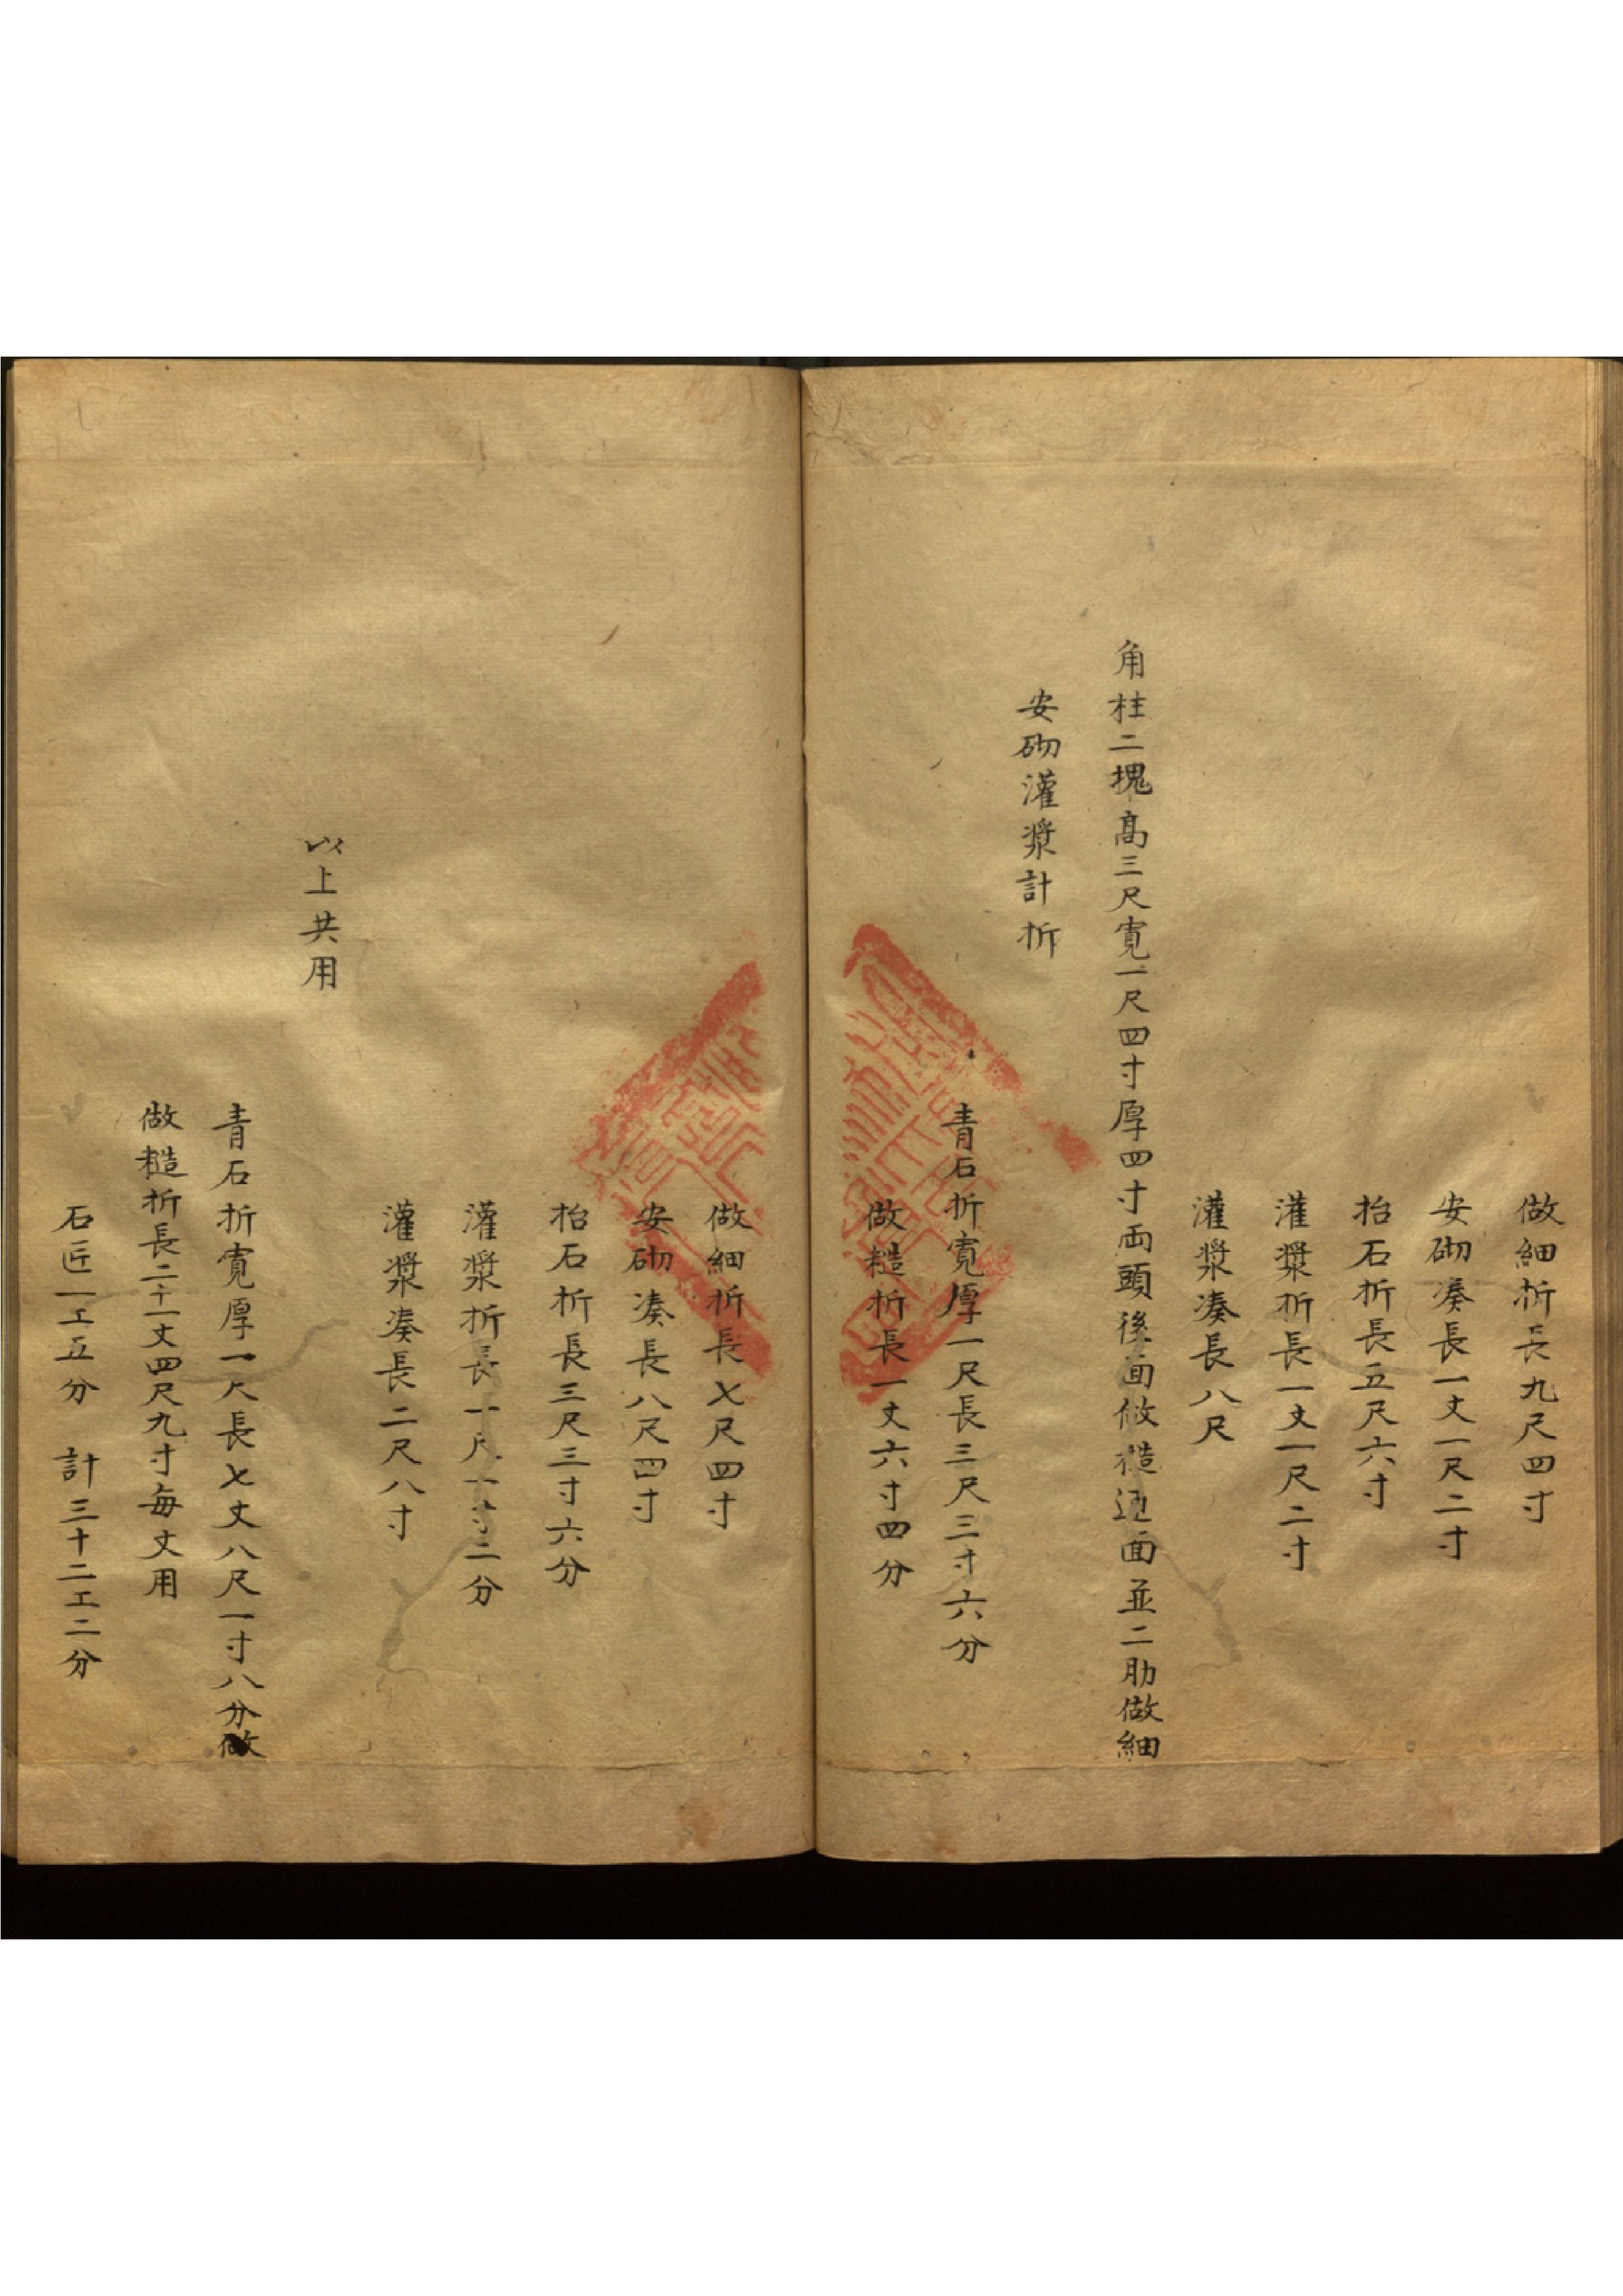 做細折長九尺四寸
安砌凑長一丈一尺二寸
抬石折長五尺六寸
灌漿折長一丈一尺二寸
灌漿凑長八尺
角柱二塊高三尺寬一尺四寸厚四寸両頭後面做糙迎面並二肋做細
安砌灌漿計折
青石折寬厚一尺長三尺三寸六分
做糙折長一丈六寸四分
做細折長七尺四寸
安砌凑長八尺四寸
抬石折長三尺三寸六分
灌漿折長一尺一寸二分
灌漿凑長二尺八寸
以上共用
青石折寬厚一尺長七丈八尺一寸八分做
做糙折長二十一丈四尺九寸每丈用
石匠一工五分 計三十二工二分